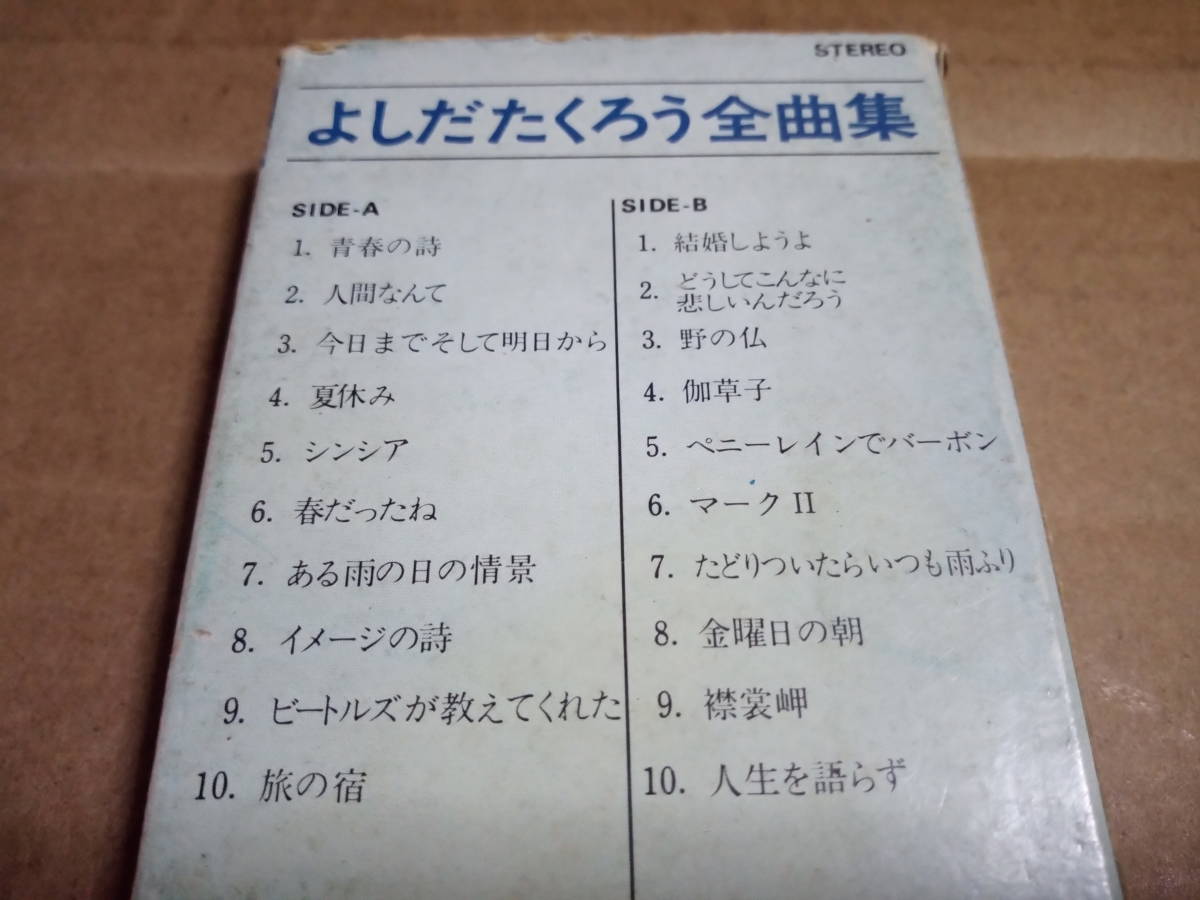 STEREO
よしだたくろう全曲集
SIDE-A
1. 青春の詩
2. 人間なんて
3. 今日までそして明日から
4. 夏休み
5. シンシア
6. 春だったね
7. ある雨の日の情景
8. イメージの詩
9. ビートルズが教えてくれた
10. 旅の宿
SIDE-B
1. 結婚しようよ
2. どうしてこんなに
悲しいんだろう
3. 野の仏
4. 伽草子
5. ペニーレインでバーボン
6. マークII
7. たどりついたらいつも雨ふり
8. 金曜日の朝
9. 襟裳岬
10. 人生を語らず